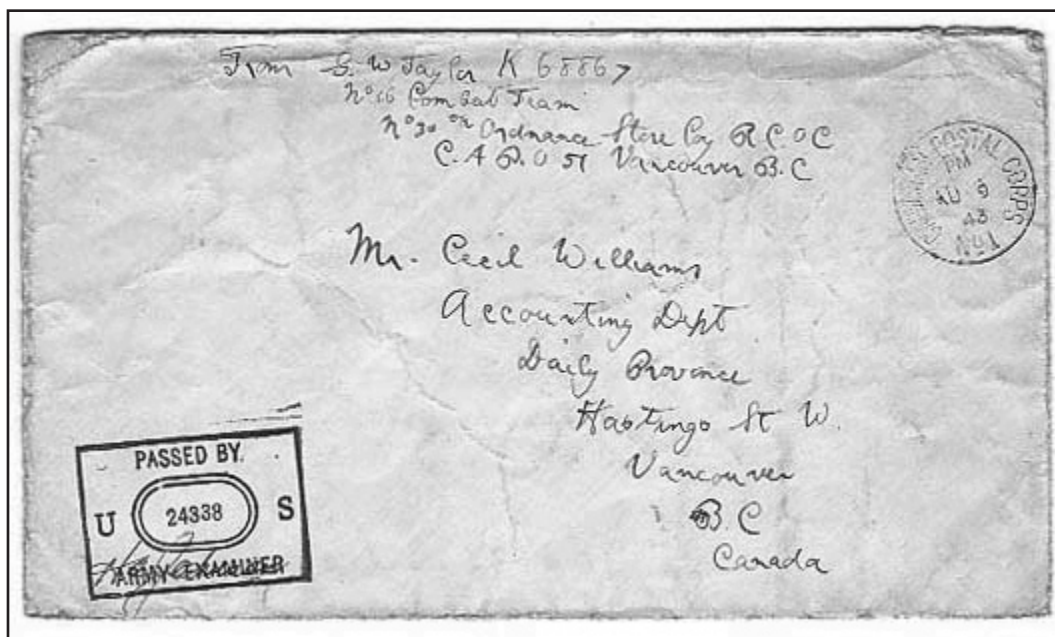 From G. W Taylor K 68867
No 16 Combat Team
Ordnance Store Coy R C O C
C. A P. O 51 Vancouver B. C
POSTAL CORPS
PM
AU 9
43
Mr. Cecil Williams
Accounting Dept
Daily Province
Hastings St W.
Vancouver
B. C
Canada
PASSED BY.
U 24338 S
ARMY EXAMINER